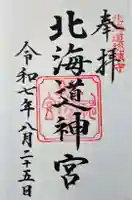 奉拝
北海道神宮
令和七年八月二十五日